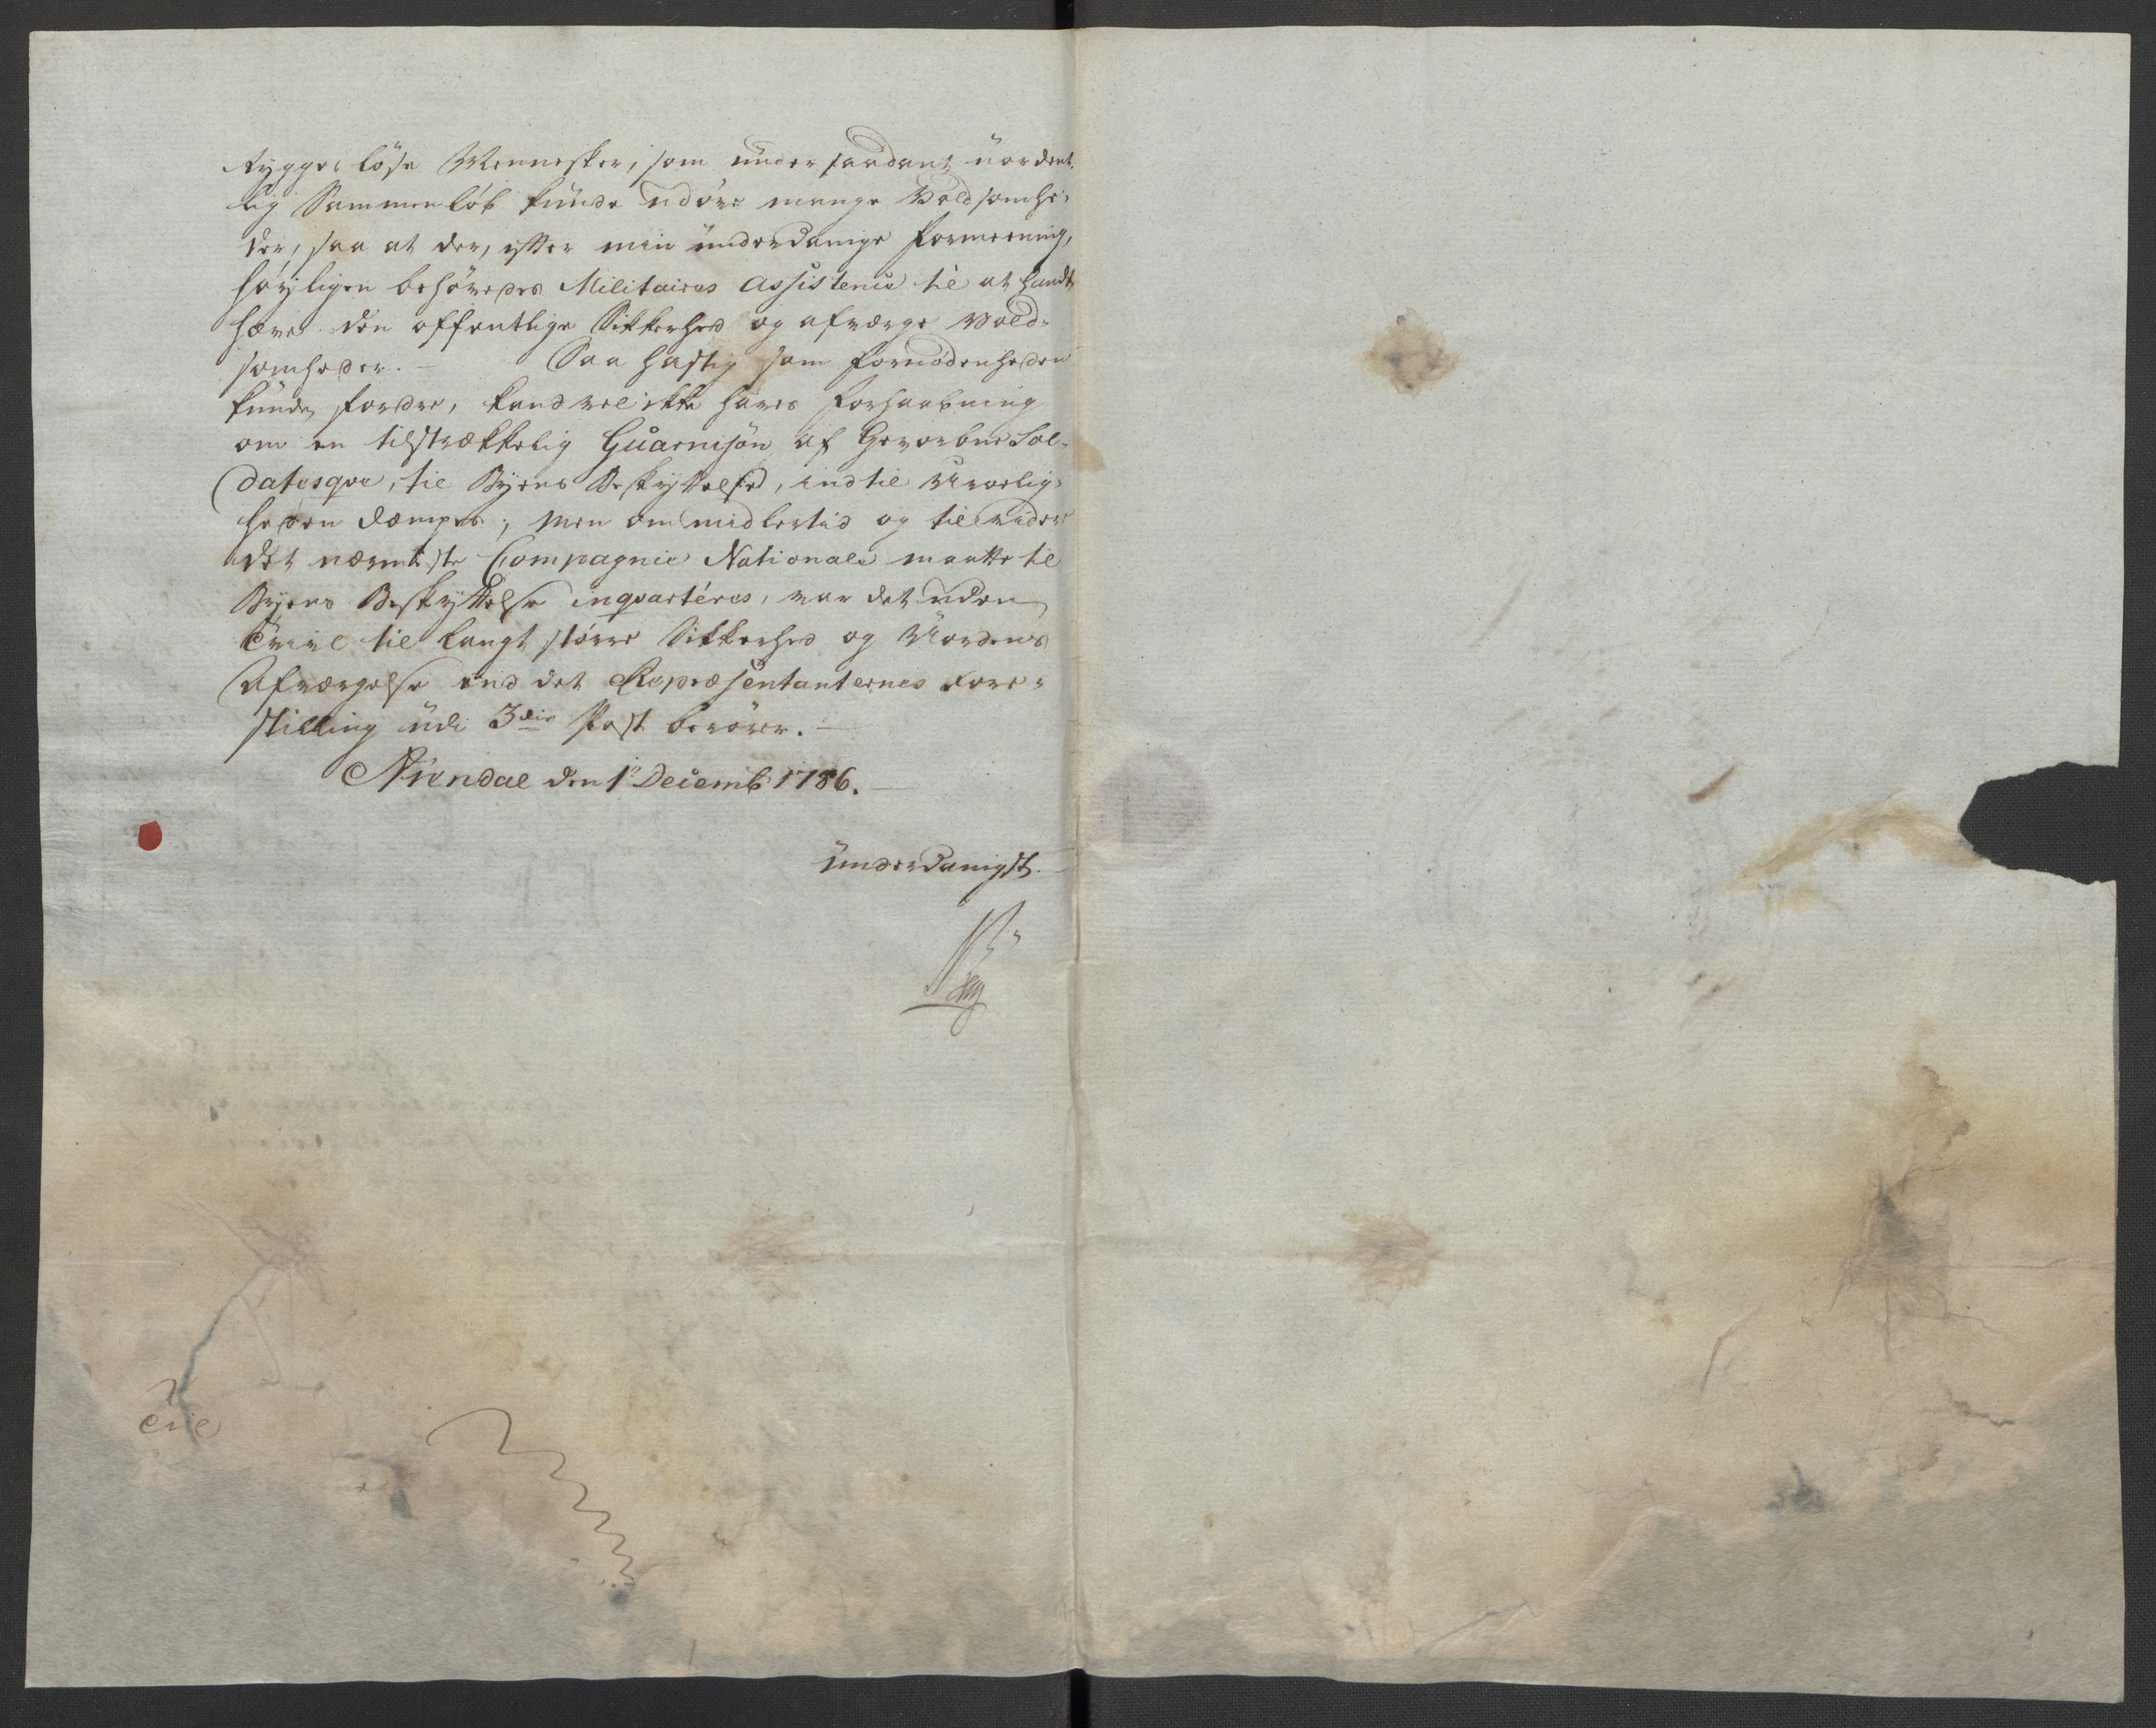 Ryggesløse Mennesker, som under saadant uordent-
lig Sammenløb kunde udøve mange Voldsomhe-
der, saa at der, efter min underdanige Formeening,
høyligen behøvedes Militaires Assistence til at handt-
hæve den offentlige Sikkerhed og afværge Vold-
somheder. – Saa hastig som Fornødenheden
kunde fordre, kand vel ikke haves Forhaabning
om en tilstrækkelig Guarnison af Hvervbne Sol-
datesque, til Byens Beskyttelse, indtil Uroelig-
heden dæmpes; men om midlertid og til videre
det nærmeste Compagnie Nationale maatte til
Byens Beskyttelse inqvartéres, var det uden
Tvivl til langt større Sikkerhed og Uordens
Afværgelse end det Repræsentanternes Fore-
stilling udi 3die Post berører. –
Arendal den 1 Decemb 1786. –
Underdanigst.